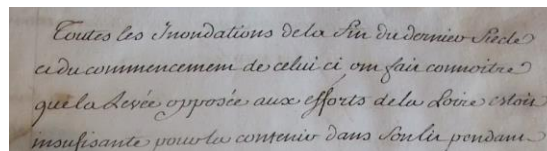 Toutes les Inondations de la fin du dernier Siecle
et du commencement de celui ci ont fait connoitre
que la Levée opposée aux efforts de la Loire estoit
insufisante pour la contenir dans son lit pendant